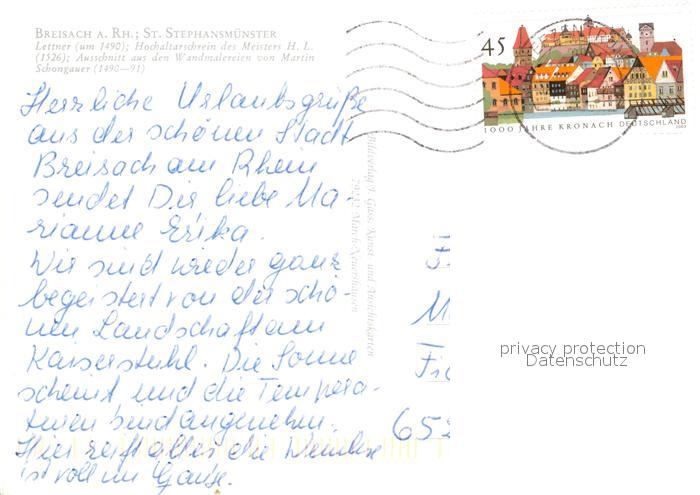 BREISACH A. RH.; ST. STEPHANSMÜNSTER
Lettner (um 1490); Hochaltarschrein des Meisters H. L.
(1526); Ausschnitt aus den Wandmalereien von Martin
Schongauer (1490—91)
Herzliche Urlaubsgrüße
aus der schönen Stadt
Breisach am Rhein
sendet Dir liebe Ma-
rianne Erika.
Wir sind wieder ganz
begeistert von der schö-
nen Landschaft am
Kaiserstuhl. Die Sonne
scheint und die Tempera-
turen sind angenehm.
Hier reift alles die Weinlese
ist voll im Gange.
45
1000 JAHRE KRONACH DEUTSCHLAND
2003
privacy protection
Datenschutz
652